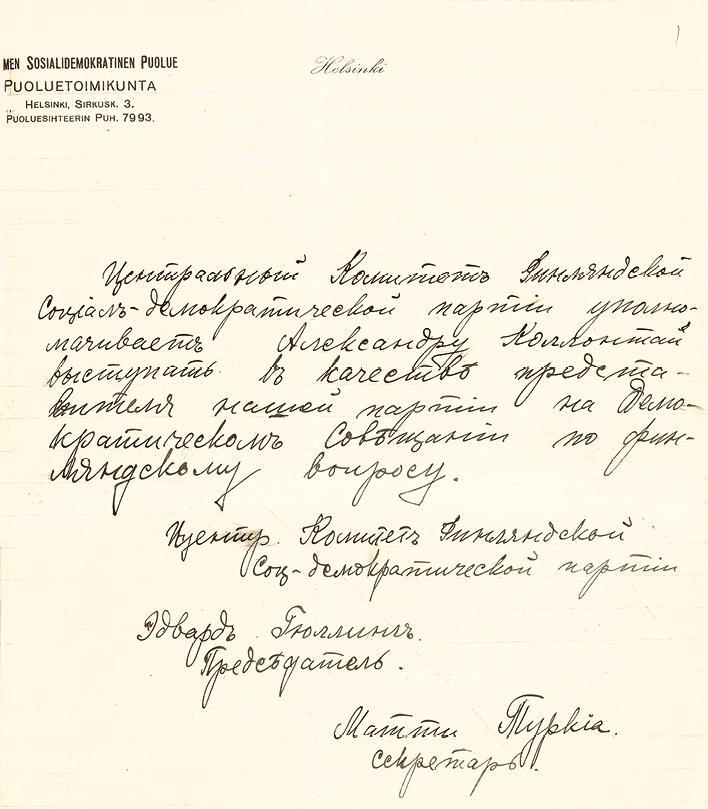 MEN SOSIALIDEMOKRATINEN PUOLUE
PUOLUETOIMIKUNTA
HELSINKI, SIRKUSK. 3.
PUOLUESIHTEERIN PUH. 7993.
Helsinki
Центральный Комитетъ Финляндской
Соціалъ-демократической партіи уполно-
мачиваетъ Александру Коллонтай
выступать въ качество предста-
вителя нашей партіи на Демо-
кратическомъ Совѣщаніи по фин-
ляндскому вопросу.
Центр. Комитетъ Финляндской
Соц-демократической партіи
Эдвардъ Гюллингъ.
Предсѣдатель.
Матти Туркіа.
секретарь.